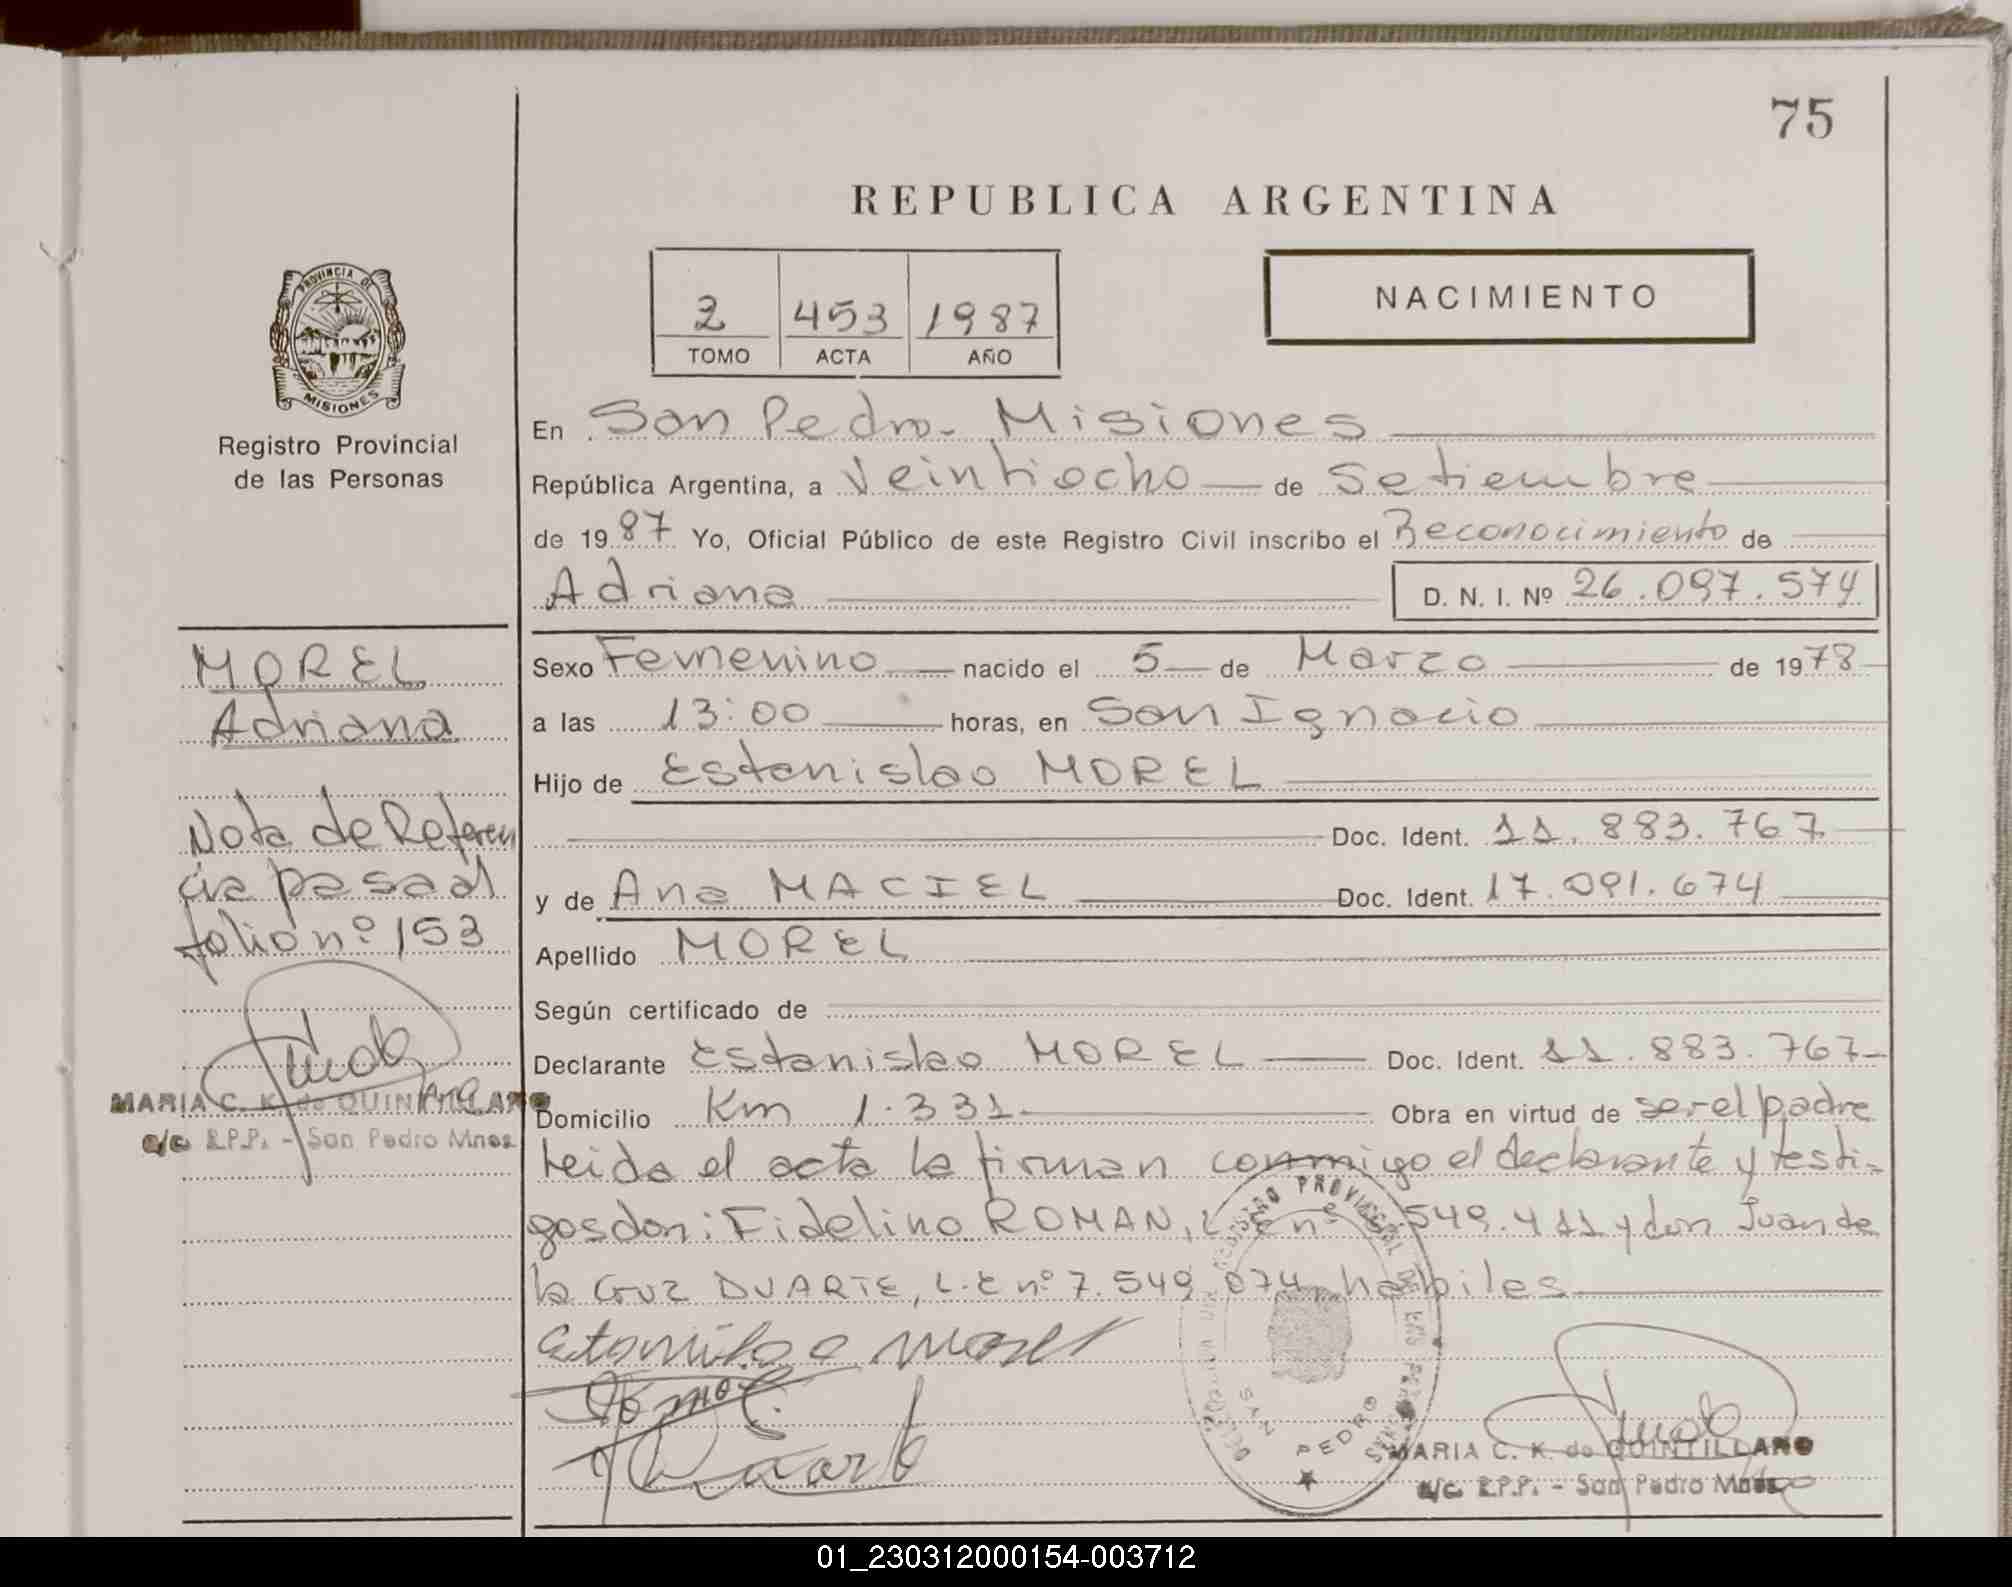 75
REPUBLICA ARGENTINA
2 453 1987
TOMO ACTA AÑO
NACIMIENTO
PROVINCIA DE
MISIONES
Registro Provincial
de las Personas
En San Pedro - Misiones
República Argentina, a Veintiocho de Setiembre
de 1987 Yo, Oficial Público de este Registro Civil inscribo el Reconocimiento de
Adriana D. N. I. Nº 26.097.574
MOREL
Adriana
Nota de Referen
cia pasa al
folio nº 153
MARIA C. K. de QUINTILLANO
a/c R.P.P. - San Pedro Mnes
Sexo Femenino nacido el 5 de Marzo de 1978
a las 13:00 horas, en San Ignacio
Hijo de Estanislao MOREL
Doc. Ident. 11.883.767
y de Ana MACIEL Doc. Ident. 17.091.674
Apellido MOREL
Según certificado de
Declarante Estanislao MOREL Doc. Ident. 11.883.767
Domicilio Km 1.331 Obra en virtud de ser el padre
leida el acta la firman conmigo el declarante y testi-
gos don: Fidelino ROMAN, L.E nº 549.411 y don Juan de
la Cruz DUARTE, L.E nº 7.549.074 habiles
Estanislao Morel
SAN PEDRO
MARIA C. K. de QUINTILLANO
a/c R.P.P. - San Pedro Mnes
01_230312000154-003712